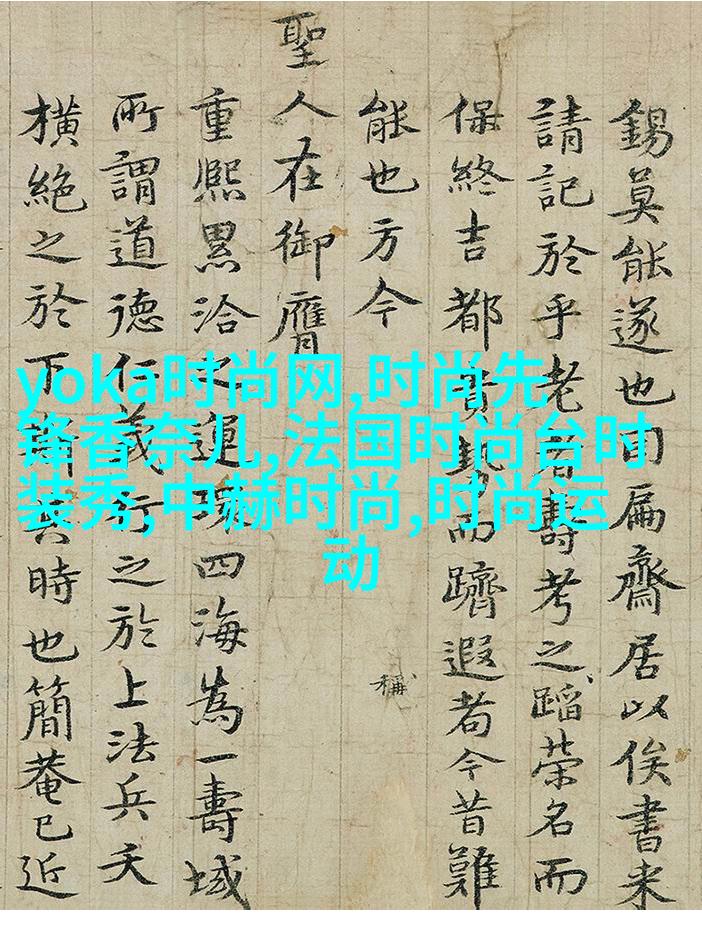 錫莫能遂也曰扁齋居以俟書來
請記於乎老者壽考之蹈荣名而
保終吉都貴勢而躋遐者今昔難
能也方今
稱
聖人在御膺
重熈累洽之運環四海為一壽域
所謂道德仁義行之於上法兵夭
橫絶之於下其時也簡菴已近
yoka时尚网,时尚先
锋香奈儿,法国时尚台时
装秀,中赫时尚,时尚运
动